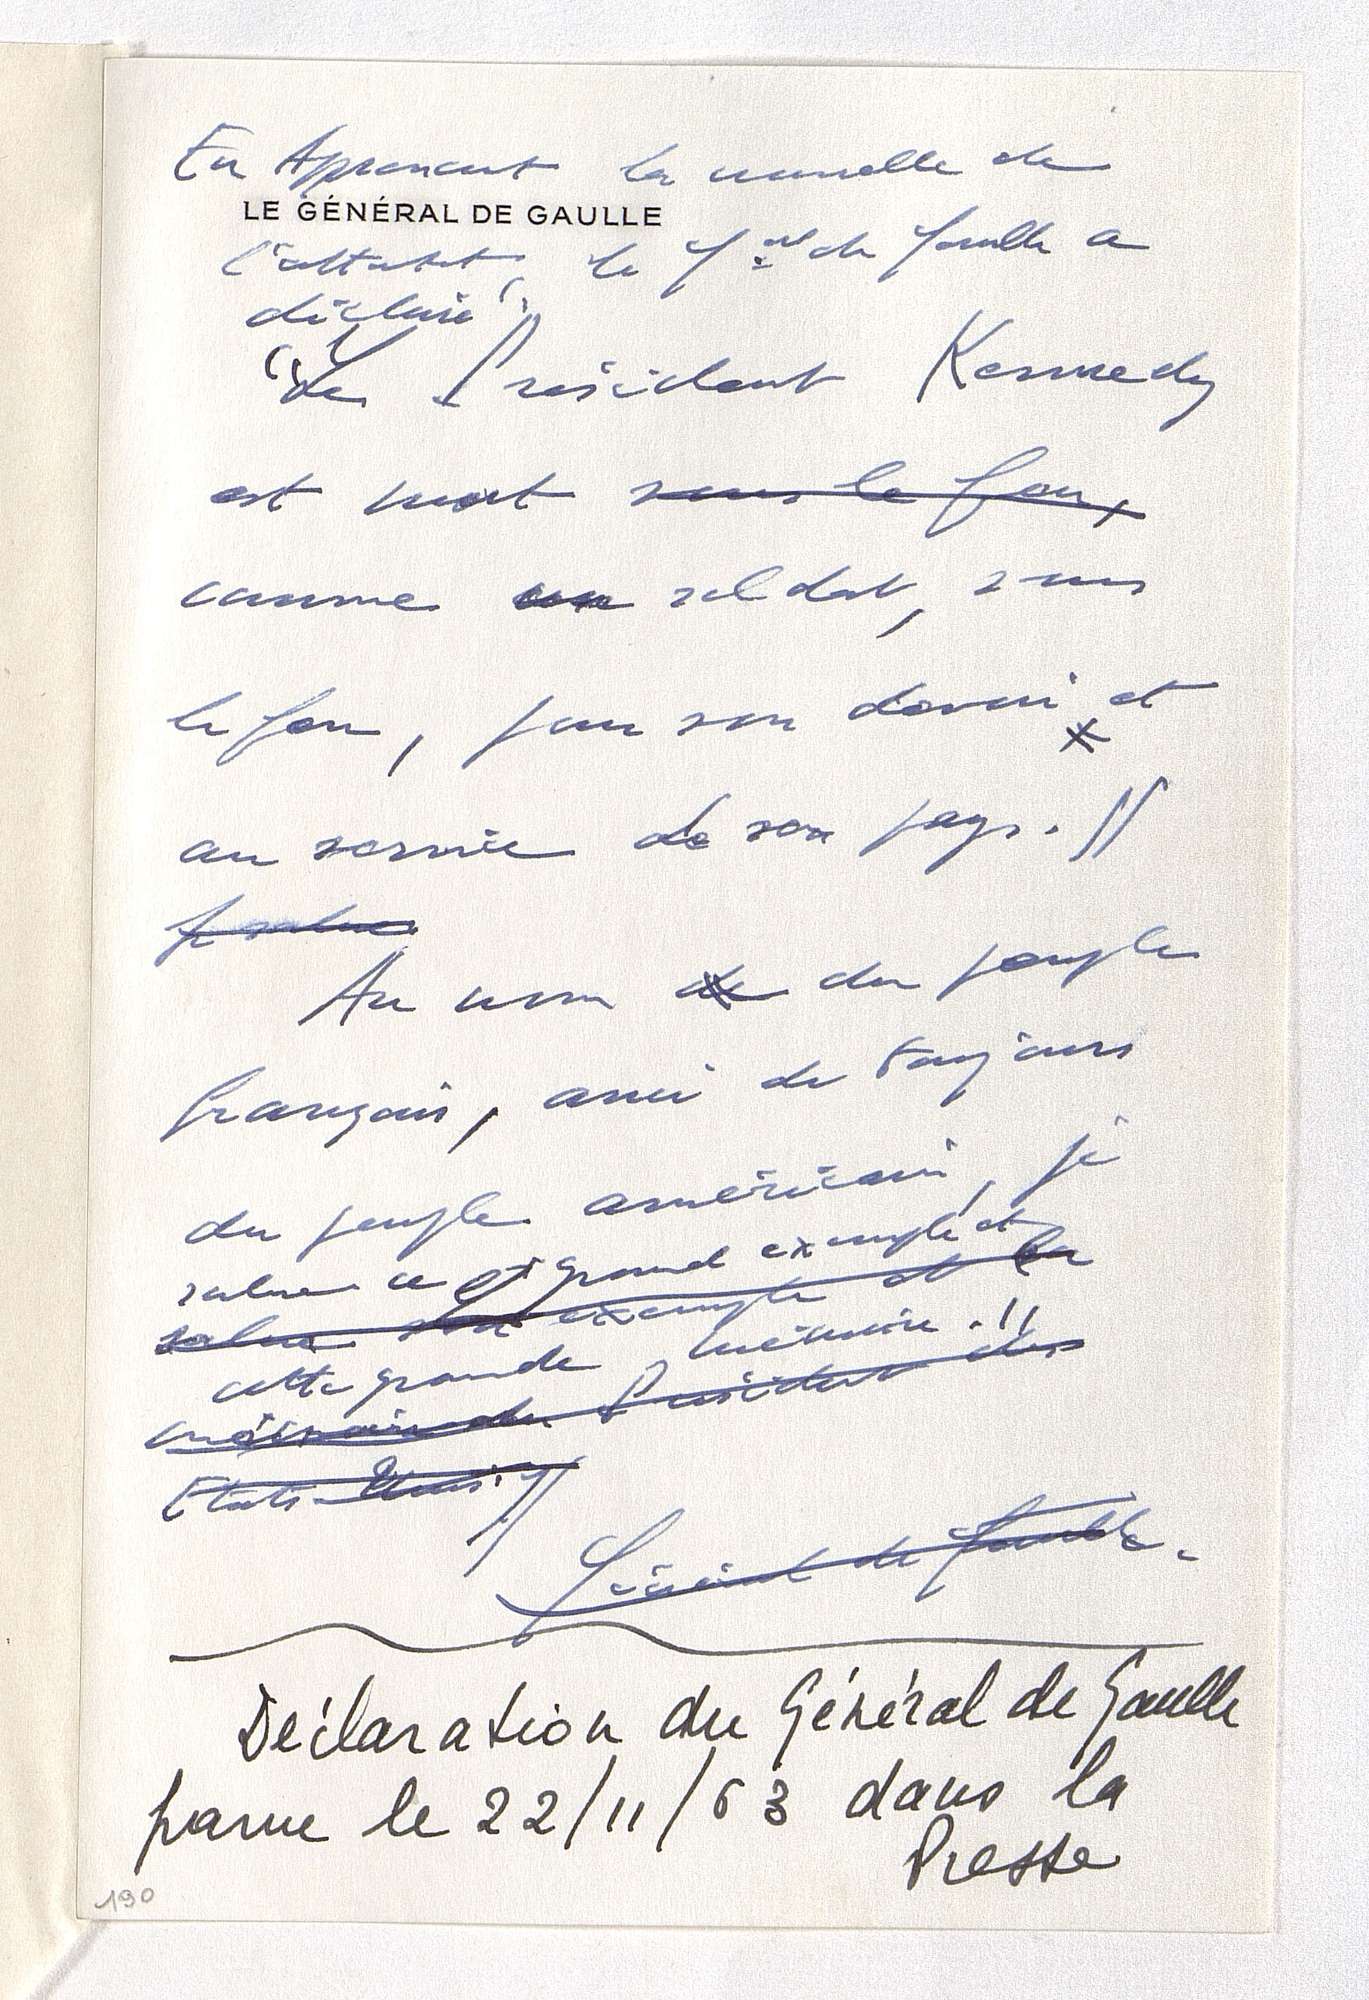 En Apprenant la nouvelle de
LE GÉNÉRAL DE GAULLE
l'attentat, le Gal de Gaulle a
déclaré :
"Le Président Kennedy
est mort sous le feu,
comme un soldat, sous
le feu, pour son devoir et
au service de son pays. //
Je salue
Au nom de du peuple
français, ami de toujours
du peuple américain, je
salue ce grand exemple et
salue son exemple et la
cette grande mémoire. "
mémoire du Président des
Etats-Unis. //
Général de Gaulle.
Déclaration du Général de Gaulle
parue le 22/11/63 dans la
Presse
190